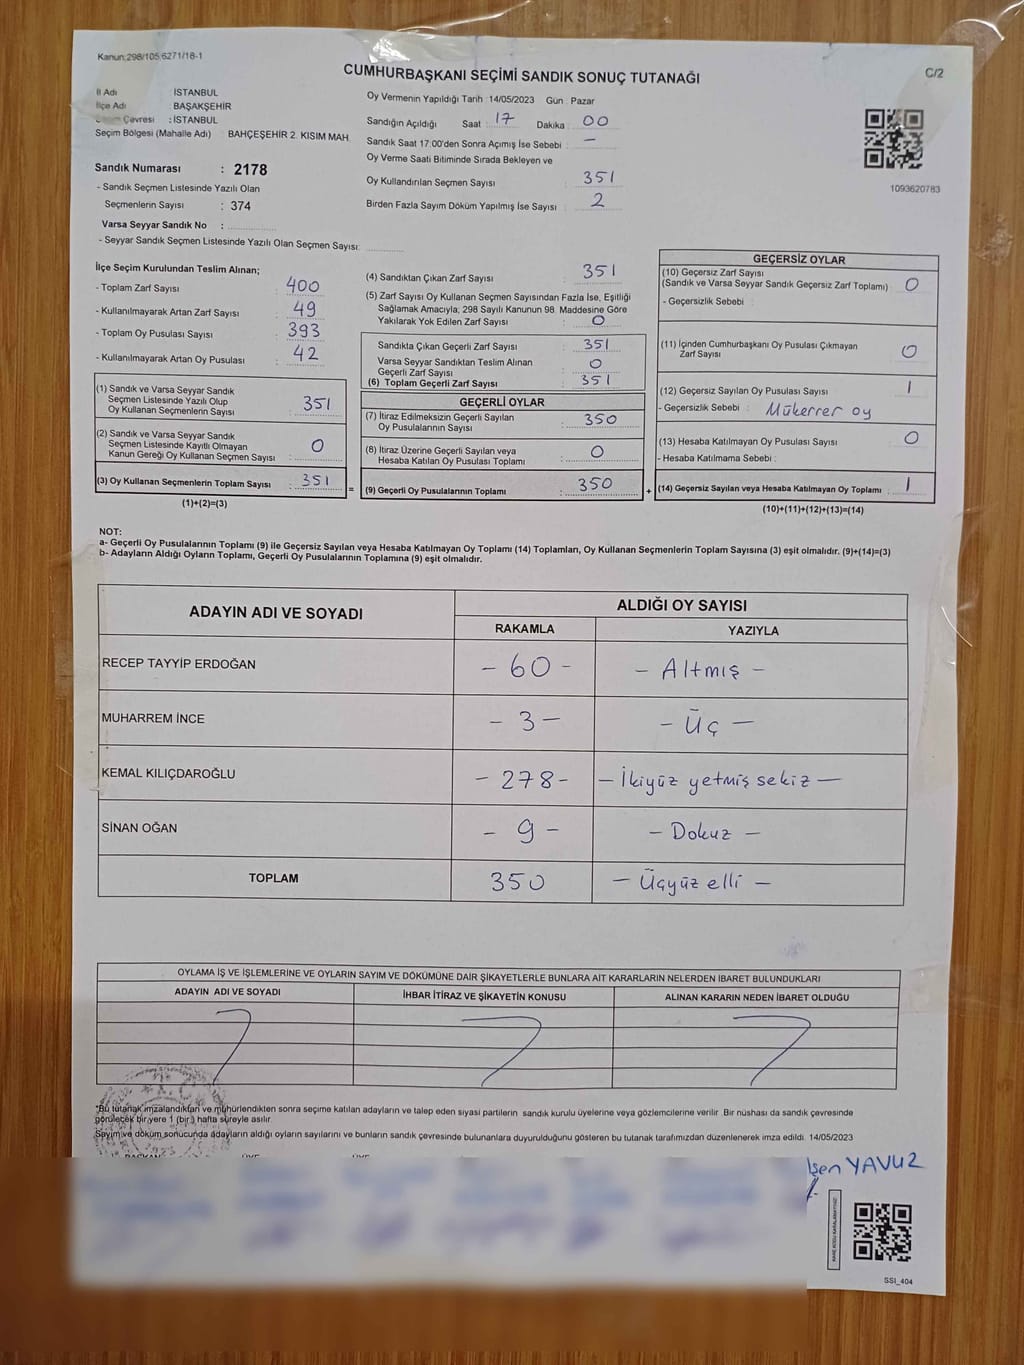 Kanun:298/105;6271/18-1
CUMHURBAŞKANI SEÇİMİ SANDIK SONUÇ TUTANAĞI
C/2
İl Adı : İSTANBUL
İlçe Adı : BAŞAKŞEHİR
Çevresi : İSTANBUL
Seçim Bölgesi (Mahalle Adı) : BAHÇEŞEHİR 2. KISIM MAH.
Oy Vermenin Yapıldığı Tarih :14/05/2023 Gün : Pazar
Sandığın Açıldığı Saat : 17 Dakika : 00
Sandık Saat 17:00'den Sonra Açımış İse Sebebi : —
Oy Verme Saati Bitiminde Sırada Bekleyen ve
Oy Kullandırılan Seçmen Sayısı : 351
Birden Fazla Sayım Döküm Yapılmış İse Sayısı : 2
1093620783
Sandık Numarası : 2178
- Sandık Seçmen Listesinde Yazılı Olan
Seçmenlerin Sayısı : 374
Varsa Seyyar Sandık No :
- Seyyar Sandık Seçmen Listesinde Yazılı Olan Seçmen Sayısı:
İlçe Seçim Kurulundan Teslim Alınan;
- Toplam Zarf Sayısı : 400
- Kullanılmayarak Artan Zarf Sayısı : 49
- Toplam Oy Pusulası Sayısı : 393
- Kullanılmayarak Artan Oy Pusulası : 42
(1) Sandık ve Varsa Seyyar Sandık
Seçmen Listesinde Yazılı Olup
Oy Kullanan Seçmenlerin Sayısı : 351
(2) Sandık ve Varsa Seyyar Sandık
Seçmen Listesinde Kayıtlı Olmayan
Kanun Gereği Oy Kullanan Seçmen Sayısı : 0
(3) Oy Kullanan Seçmenlerin Toplam Sayısı : 351
(1)+(2)=(3)
=
(4) Sandıktan Çıkan Zarf Sayısı : 351
(5) Zarf Sayısı Oy Kullanan Seçmen Sayısından Fazla İse, Eşitliği
Sağlamak Amacıyla; 298 Sayılı Kanunun 98. Maddesine Göre
Yakılarak Yok Edilen Zarf Sayısı : 0
Sandıkta Çıkan Geçerli Zarf Sayısı : 351
Varsa Seyyar Sandıktan Teslim Alınan
Geçerli Zarf Sayısı : 0
(6) Toplam Geçerli Zarf Sayısı : 351
GEÇERLİ OYLAR
(7) İtiraz Edilmeksizin Geçerli Sayılan
Oy Pusulalarının Sayısı : 350
(8) İtiraz Üzerine Geçerli Sayılan veya
Hesaba Katılan Oy Pusulası Toplamı : 0
(9) Geçerli Oy Pusulalarının Toplamı : 350
+
GEÇERSİZ OYLAR
(10) Geçersiz Zarf Sayısı
(Sandık ve Varsa Seyyar Sandık Geçersiz Zarf Toplamı) : 0
- Geçersizlik Sebebi :
(11) İçinden Cumhurbaşkanı Oy Pusulası Çıkmayan
Zarf Sayısı : 0
(12) Geçersiz Sayılan Oy Pusulası Sayısı : 1
- Geçersizlik Sebebi : Mükerrer oy
(13) Hesaba Katılmayan Oy Pusulası Sayısı : 0
- Hesaba Katılmama Sebebi :
(14) Geçersiz Sayılan veya Hesaba Katılmayan Oy Toplamı : 1
(10)+(11)+(12)+(13)=(14)
NOT:
a- Geçerli Oy Pusulalarının Toplamı (9) ile Geçersiz Sayılan veya Hesaba Katılmayan Oy Toplamı (14) Toplamları, Oy Kullanan Seçmenlerin Toplam Sayısına (3) eşit olmalıdır. (9)+(14)=(3)
b- Adayların Aldığı Oyların Toplamı, Geçerli Oy Pusulalarının Toplamına (9) eşit olmalıdır.
ADAYIN ADI VE SOYADI ALDIĞI OY SAYISI
RAKAMLA YAZIYLA
RECEP TAYYİP ERDOĞAN - 60 - - Altmış -
MUHARREM İNCE - 3 - - Üç -
KEMAL KILIÇDAROĞLU - 278 - - İkiyüz yetmiş sekiz -
SİNAN OĞAN - 9 - - Dokuz -
TOPLAM 350 - Üçyüz elli -
OYLAMA İŞ VE İŞLEMLERİNE VE OYLARIN SAYIM VE DÖKÜMÜNE DAİR ŞİKAYETLERLE BUNLARA AİT KARARLARIN NELERDEN İBARET BULUNDUKLARI
ADAYIN ADI VE SOYADI İHBAR İTİRAZ VE ŞİKAYETİN KONUSU ALINAN KARARIN NEDEN İBARET OLDUĞU
*Bu tutanak imzalandıktan ve mühürlendikten sonra seçime katılan adayların ve talep eden siyasi partilerin sandık kurulu üyelerine veya gözlemcilerine verilir. Bir nüshası da sandık çevresinde
görülecek bir yere 1 (bir) hafta süreyle asılır.
Sayım ve döküm sonucunda adayların aldığı oyların sayılarını ve bunların sandık çevresinde bulunanlara duyurulduğunu gösteren bu tutanak tarafımızdan düzenlenerek imza edildi. 14/05/2023
BAŞKAN ÜYE ÜYE
YAVUZ
SSI_404